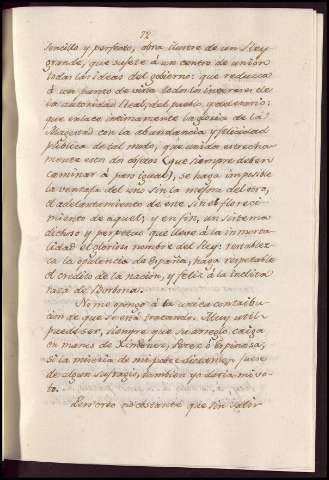 72
sencillo y perfecto, obra ilustre de un Rey
grande, que sujete á un centro de unión
todas las ideas del gobierno: que reduzca
á un punto de vista todos los intereses de
la autoridad Real, del pueblo, y del erario:
que enlace intimamente la gloria de la
Magestad con la abundancia y felicidad
pública de tal modo, que unidos estrecha
mente estos dos objetos (que siempre deben
caminar á paso igual), se haga imposible
la ventaja del uno sin la mejora del otro,
el adelantamiento de este sin el florec
imiento de aquel; y en fin, un sistema
dichoso y perpetuo que lleve á la inmorta
lidad el glorioso nombre del Rey: restablez
ca la opulencia de España, haga respetable
el crédito de la nación, y feliz á la inclita
raza de Borbón.
No me opongo á la unica contribu
cion de que se está tratando. Muy util
puede ser, siempre que su arreglo caiga
en manos de Ximenez, Perez ó Espinosa,
si la miseria de mi pobre dictamen fuese
de algun sufragio, tambien yo daria mi vo
to.
Pero creo no obstante que sin salir